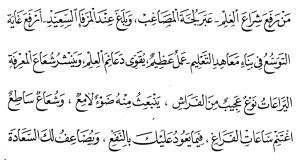 مَنْ رَفَعَ شِرَاعَ الْعِلْمِ، عَبَرَ لُجَّةَ الْمَصَاعِبِ، وَبَلَغَ عِنْدَ الْمَرْفَإِ السَّعِيدِ. أَرْفَعَ غَايَةٍ
التَّوَسُّعُ فِي بِنَاءِ مَعَاهِدِ التَّعْلِيمِ، عَمَلٌ عَظِيمٌ، يُقَوِّي دَعَائِمَ الْعِلْمِ، وَيَنْشُرُ شُعَاعَ الْمَعْرِفَةِ
الْيَرَاعَاتُ نَوْعٌ عَجِيبٌ مِنَ الْفَرَاشِ، يَنْبَعِثُ مِنْهُ ضَوْءٌ لَامِعٌ، وَشُعَاعٌ سَاطِعٌ
اغْتَنِمْ سَاعَاتِ الْفَرَاغِ، فِيمَا يَعُودُ عَلَيْكَ بِالنَّفْعِ، وَيُضَاعِفُ لَكَ السَّعَادَةَ